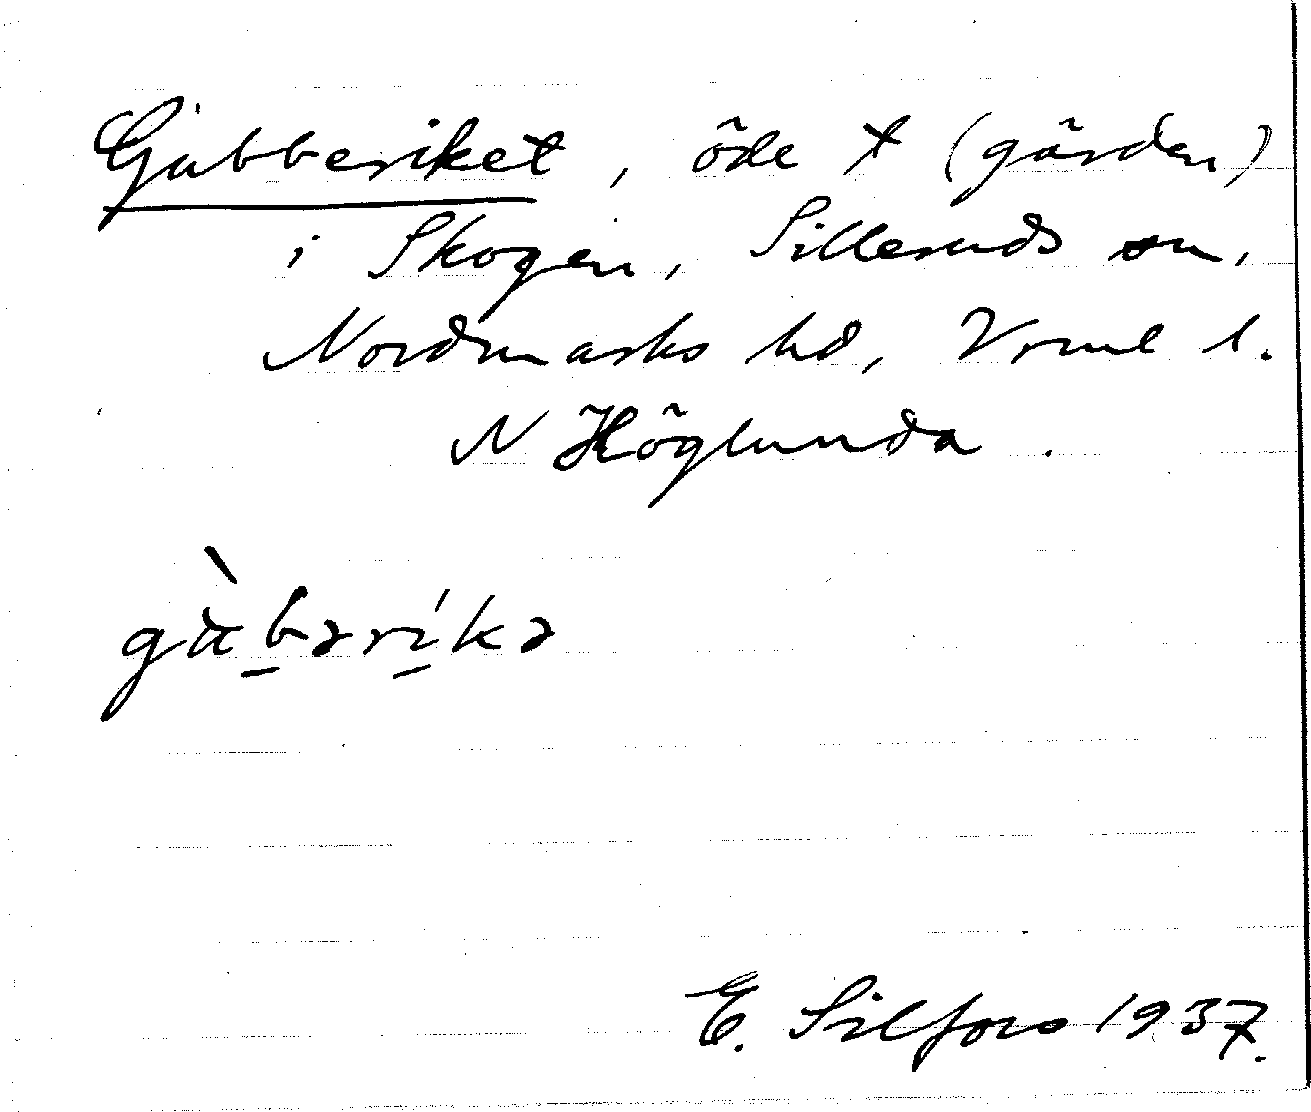 Gubberiket, öde x (gården)
i Skogen, Silleruds sn,
Nordmarks hd, Vrml l.
N Höglunda.
gàbəríkə
E. Silfors 1937.